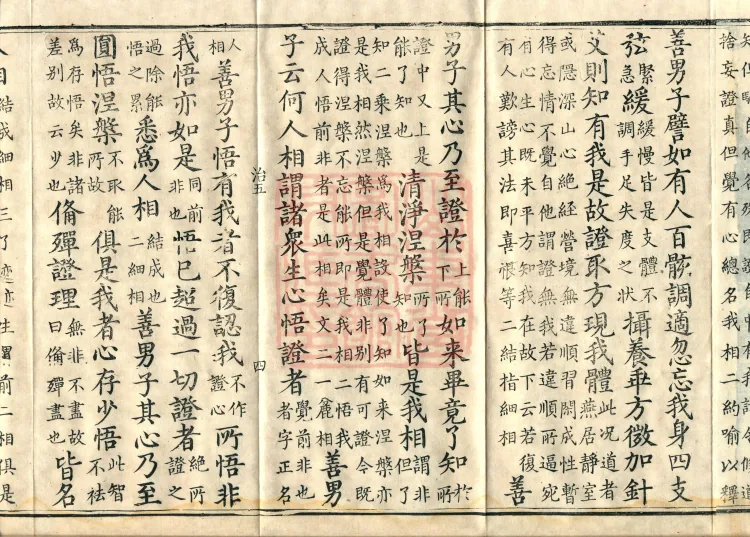 捨妄證真但覺有心總名我相二約喻以釋
善男子譬如有人百骸調適忽忘我身四支
弦緊急緩緩慢皆是支體不調手足失度之狀攝養乖方微加針
艾則知有我是故證取方現我體此況道者燕居靜室
或隱深山心絕經營境無違順習閑成性暫
得忘情不覺自他謂證無我若違順所逼宛
有心生心既未平方知我在故下云若復
有人歎謗其法即喜恨等二結指細相善
男子其心乃至證於上能下所如来畢竟了知於所
證中又上是能了知也清淨涅槃所了知也皆是我相謂非但了
知二乘涅槃爲我相設使了知如来涅槃亦
是我相然涅槃但是覺體非别有可證今既
證得涅槃不忘能所即是我相二悟我
成人悟前非者是此相矣文二一麁相善男
子云何人相謂諸衆生心悟證者覺前非也者字正名
治五
四
人相善男子悟有我者不復認我不作證心所悟非
我悟亦如是同前非也悟已超過一切證者絕所證之
過除能悟之累悉爲人相結成也二細相善男子其心乃至
圓悟涅槃不取能所故俱是我者心存少悟此智不祛
爲存悟矣非諸差别故云少也俻殫證理無非不盡故曰俻殫盡也皆名